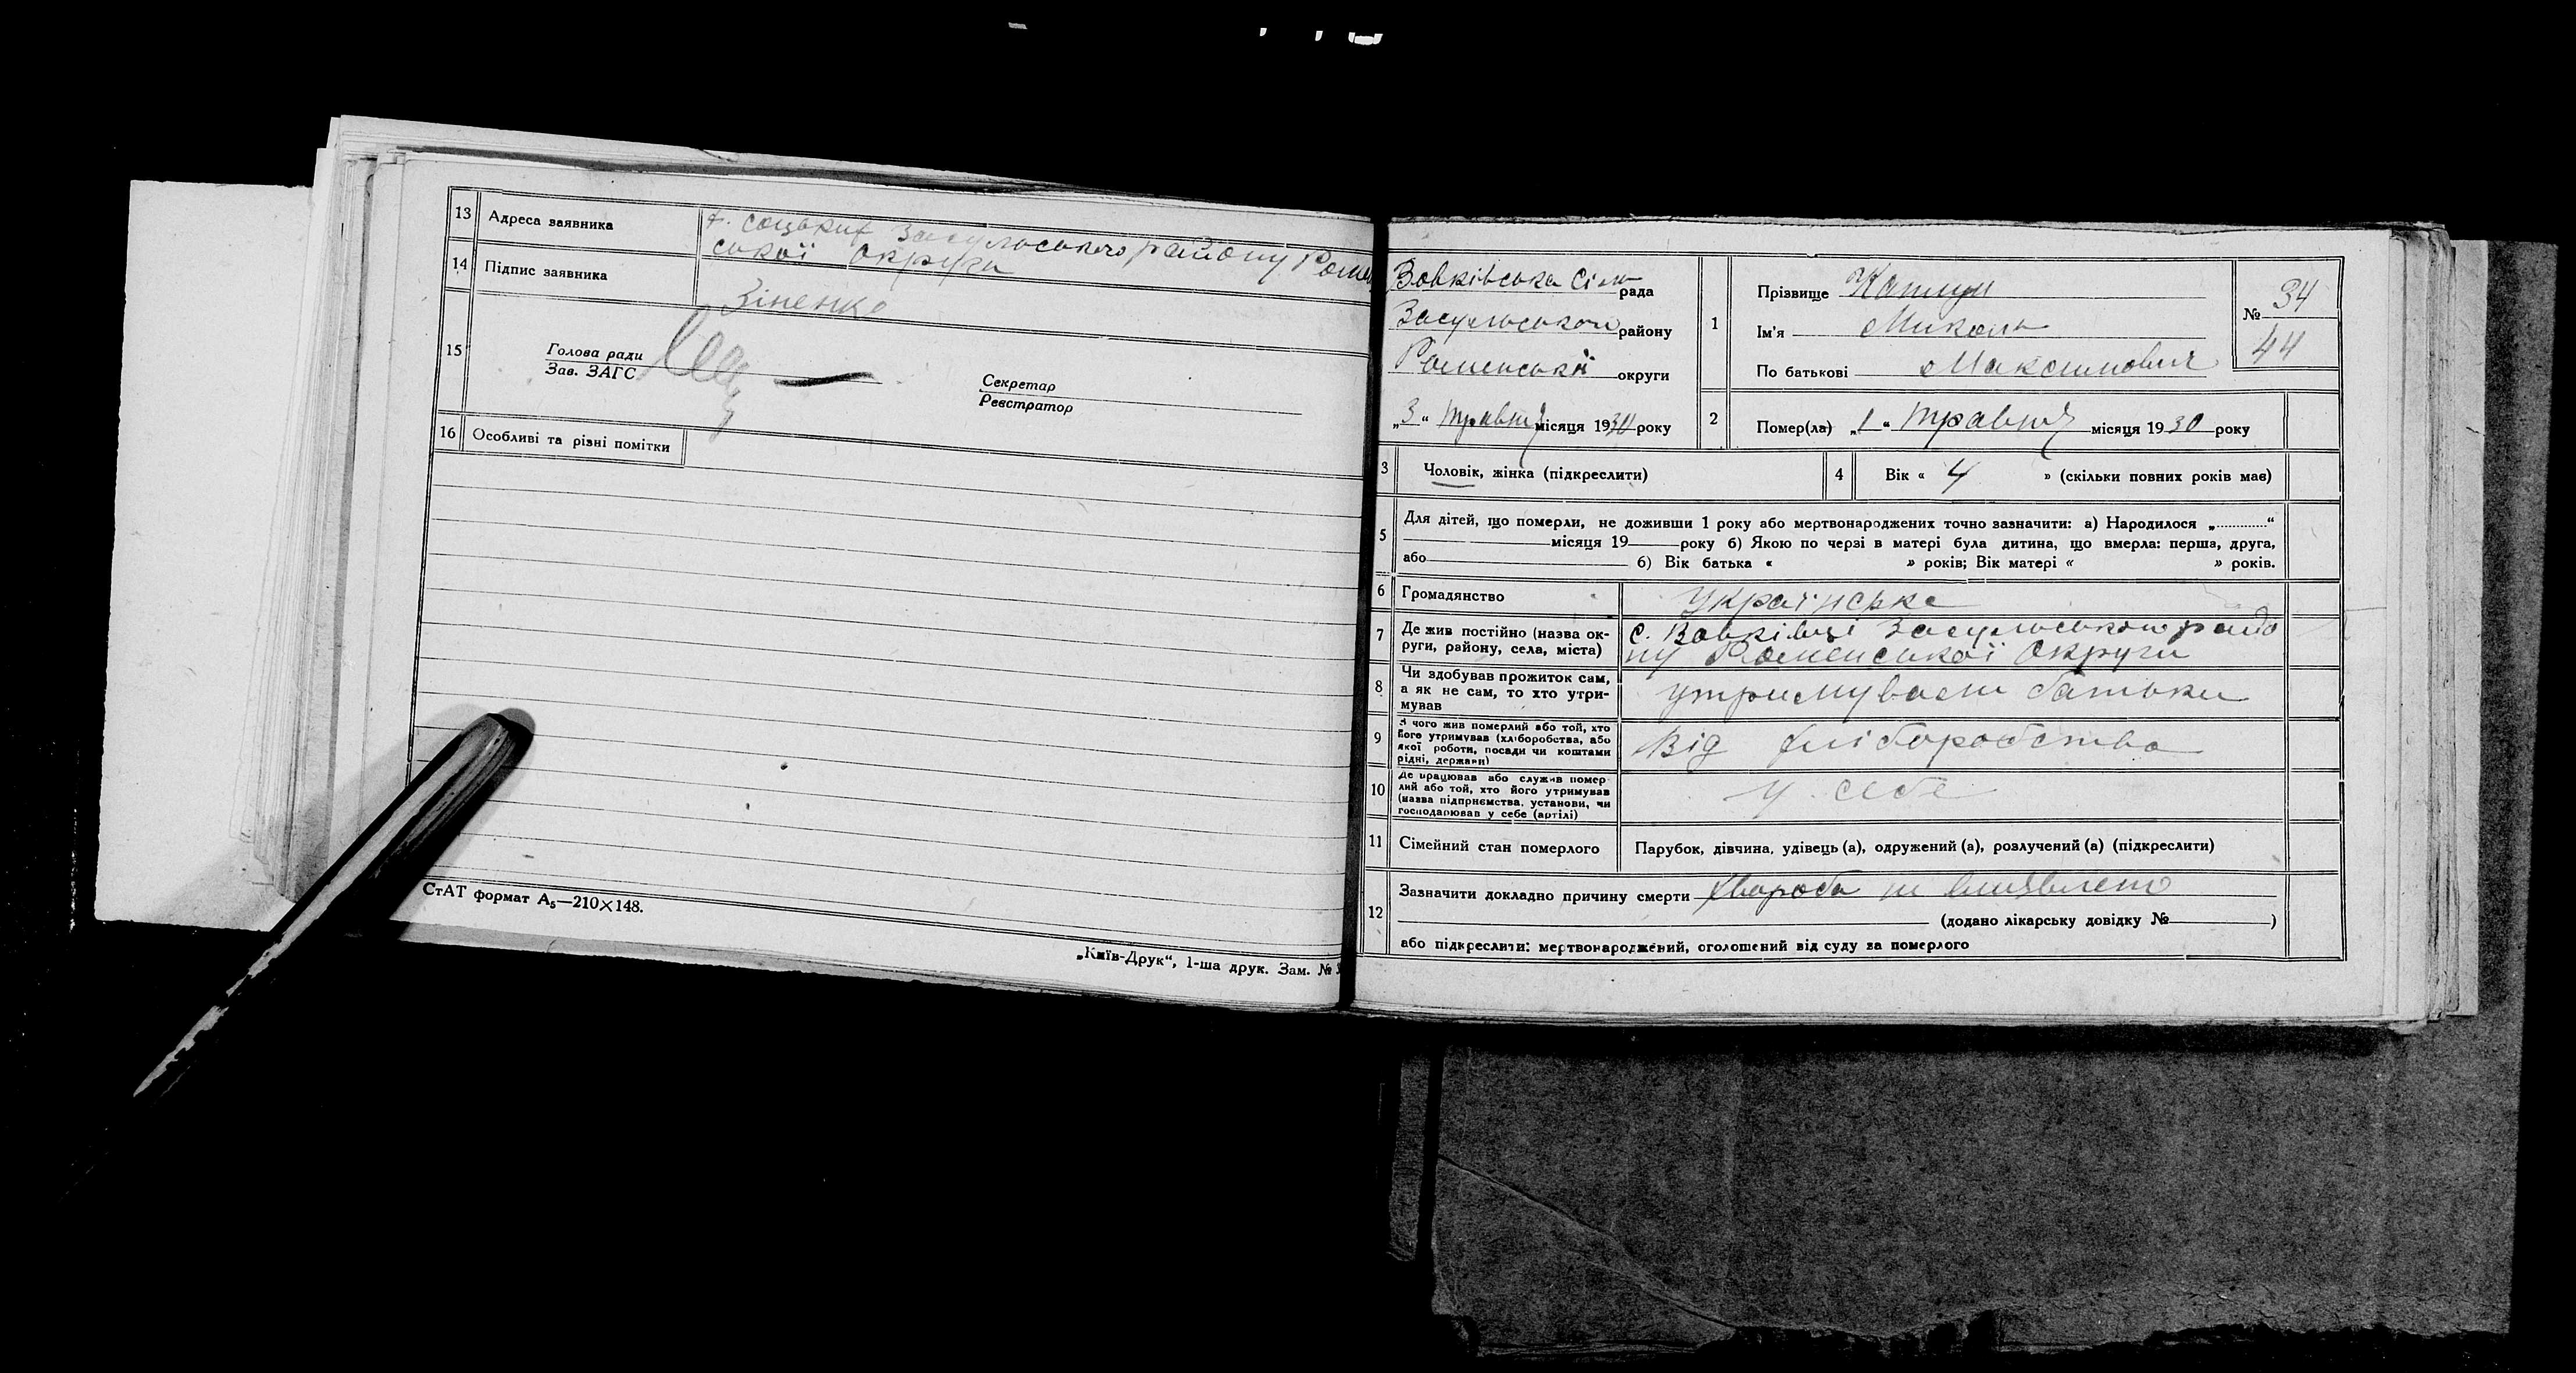 13 Адреса заявника х. Соцьких Засульського району Ромен
ської Округи
14 Підпис заявника Зіненко
15 Голова ради
Зав. ЗАГС
Секретар
Реєстратор
16 Особливі та різні помітки
СтАТ формат А₅—210×148.
„Київ-Друк“, 1-ша друк. Зам. №
Вовківська Сіль рада
Засульського району
Роменської округи
„3“ Травня місяця 1930 року
1 Прізвище
Ім'я Микола
По батькові Максимович
№ 34
44
2 Помер(ла) „1“ Травня місяця 1930 року
3 Чоловік, жінка (підкреслити)
4 Вік « 4 » (скільки повних років має)
5 Для дітей, що померли, не доживши 1 року або мертвонароджених точно зазначити: а) Народилося „............“
місяця 19 року б) Якою по черзі в матері була дитина, що вмерла: перша, друга,
або б) Вік батька « » років; Вік матері « » років.
6 Громадянство Українське
7 Де жив постійно (назва ок-
руги, району, села, міста)
с. Вовківці Засульського райо
ну Роменської Округи
8 Чи здобував прожиток сам,
а як не сам, то хто утри-
мував
утримували батьки
9 З чого жив померлий або той, хто
його утримував (хліборобства, або
якої роботи, посади чи коштами
рідні, держави)
Від хліборобства
10 Де працював або служив помер
лий або той, хто його утримував
(назва підприємства, установи, чи
господарював у себе (артілі)
у себе
11 Сімейний стан померлого Парубок, дівчина, удівець (а), одружений (а), розлучений (а) (підкреслити)
12 Зазначити докладно причину смерти Хвороба не виявлено
(додано лікарську довідку № )
або підкреслити: мертвонароджений, оголошений від суду за померлого